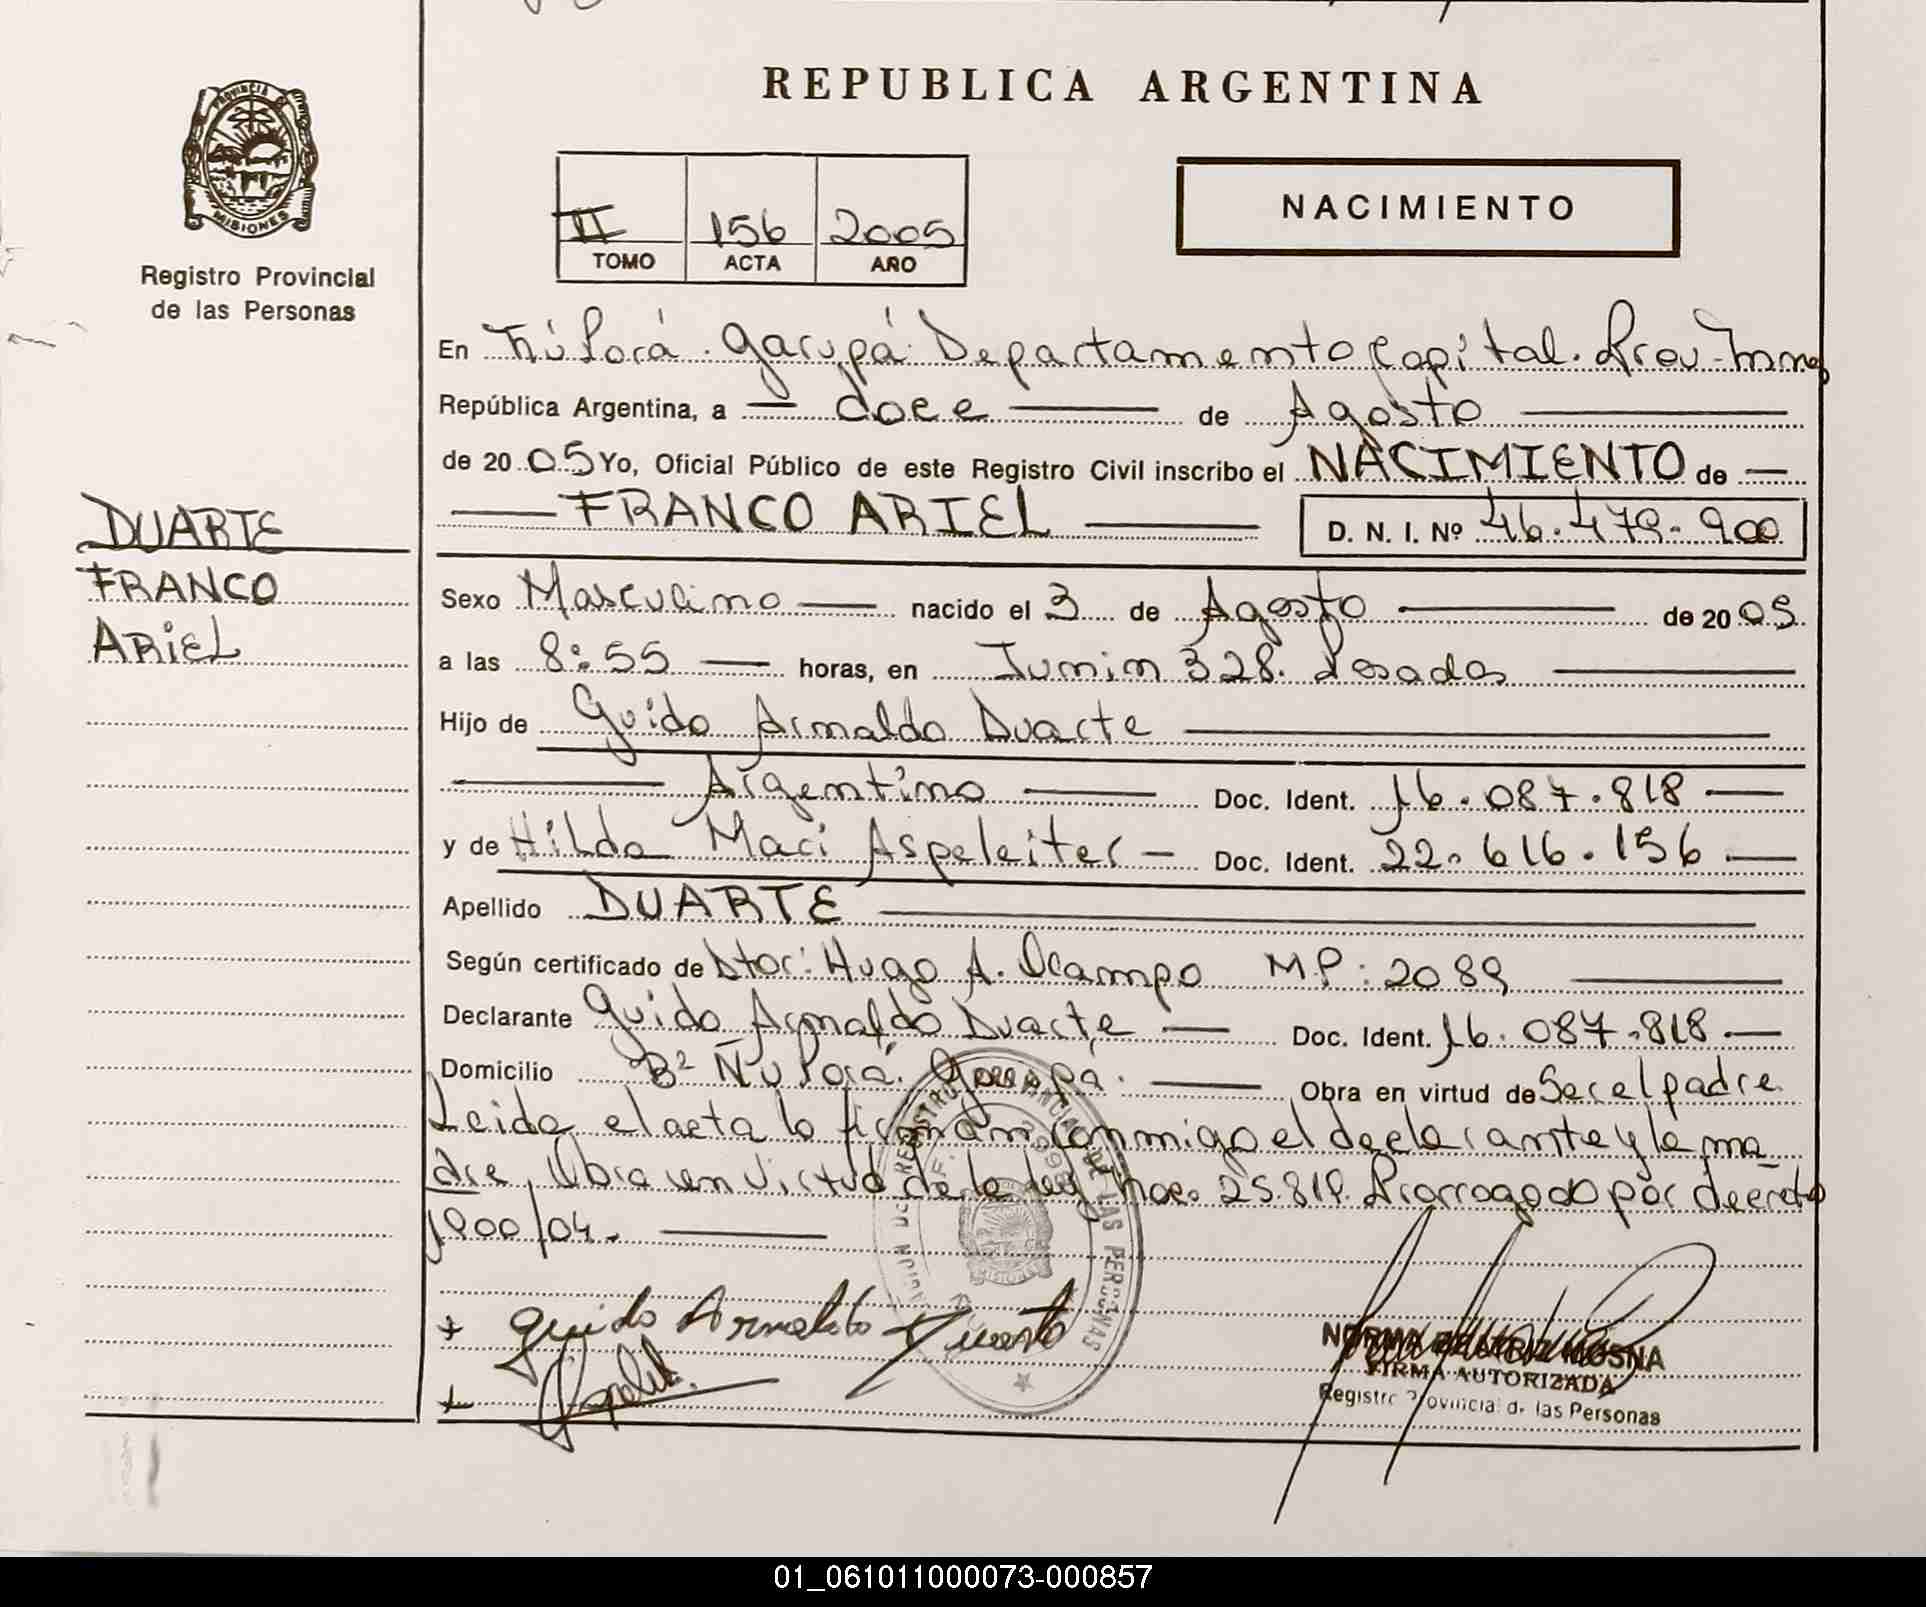 REPUBLICA ARGENTINA
PROVINCIA DE
MISIONES
Registro Provincial
de las Personas
II 156 2005
TOMO ACTA AÑO
NACIMIENTO
En Ñu Porá. Garupá Departamento Capital. Prov. Mnes
República Argentina, a — doce — de Agosto —
de 20 05 Yo, Oficial Público de este Registro Civil inscribo el NACIMIENTO de —
— FRANCO ARIEL — D. N. I. Nº 46.479.900
DUARTE
FRANCO
ARIEL
Sexo Masculino — nacido el 3 de Agosto — de 20 05
a las 8:55 — horas, en Junin 328. Posadas —
Hijo de Guido Arnaldo Duarte —
— Argentino — Doc. Ident. 16.087.818 —
y de Hilda Mari Aspeleiter — Doc. Ident. 22.616.156 —
Apellido DUARTE —
Según certificado de Dtor: Hugo A. Ocampo M.P: 2089 —
Declarante Guido Arnaldo Duarte — Doc. Ident. 16.087.818 —
Domicilio Bº Ñu Porá. Garupá. — Obra en virtud de Ser el padre
Leida el acta la firman conmigo el declarante y la ma
dre. Obra en virtud de la ley nac. 25.819. Prorrogado por decreto
1900/04. —
Guido Arnaldo Duarte
NORMA BEATRIZ MOSNA
FIRMA AUTORIZADA
Registro Provincial de las Personas
01_061011000073-000857